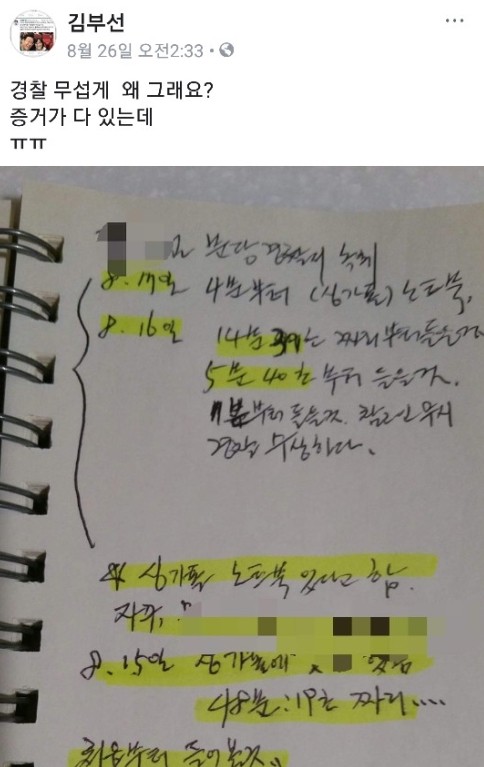 김부선
8월 26일 오전2:33
경찰 무섭게 왜 그래요?
증거가 다 있는데
ㅠㅠ
분당경찰서 녹취
8. 17일 4분부터 (싱가폴) 노트북,
8. 16일 14분 39초 짜리부터들을것
5분 40초 부터 들을것.
부터 들을것. 참고인 무시
경찰 수상하다.
싱가폴 노트북 있다고 함.
자꾸,
8. 15일 싱가폴에
48분:19초 짜리....
처음부터 들어볼것,,